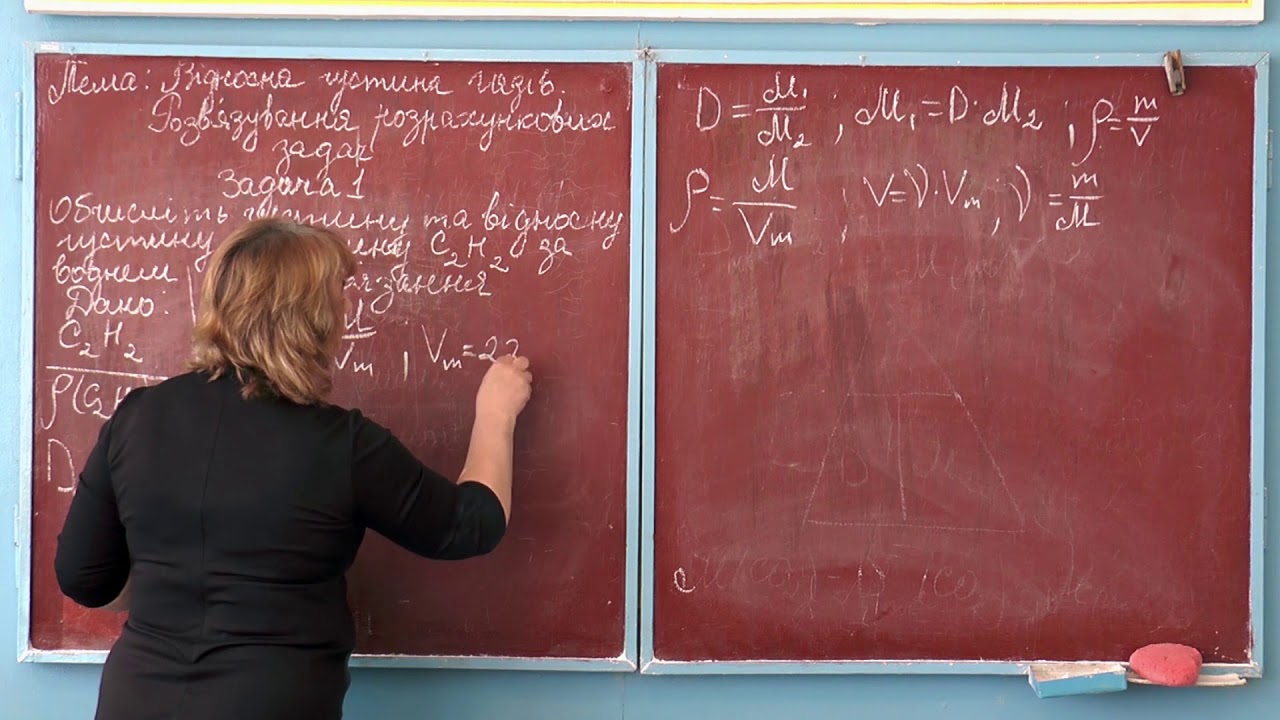 Тема: Відносна густина газів.
Розв'язування розрахункових
задач
Задача 1
Обчисліть густину та відносну
густину C₂H₂ за
воднем
Дано:
C₂H₂
Vm ; Vm = 22
ρ(C₂H
D
D = M₁/M₂ ; M₁ = D · M₂ ; ρ = m/V
ρ = M/Vm ; V = ν · Vm ; ν = m/M